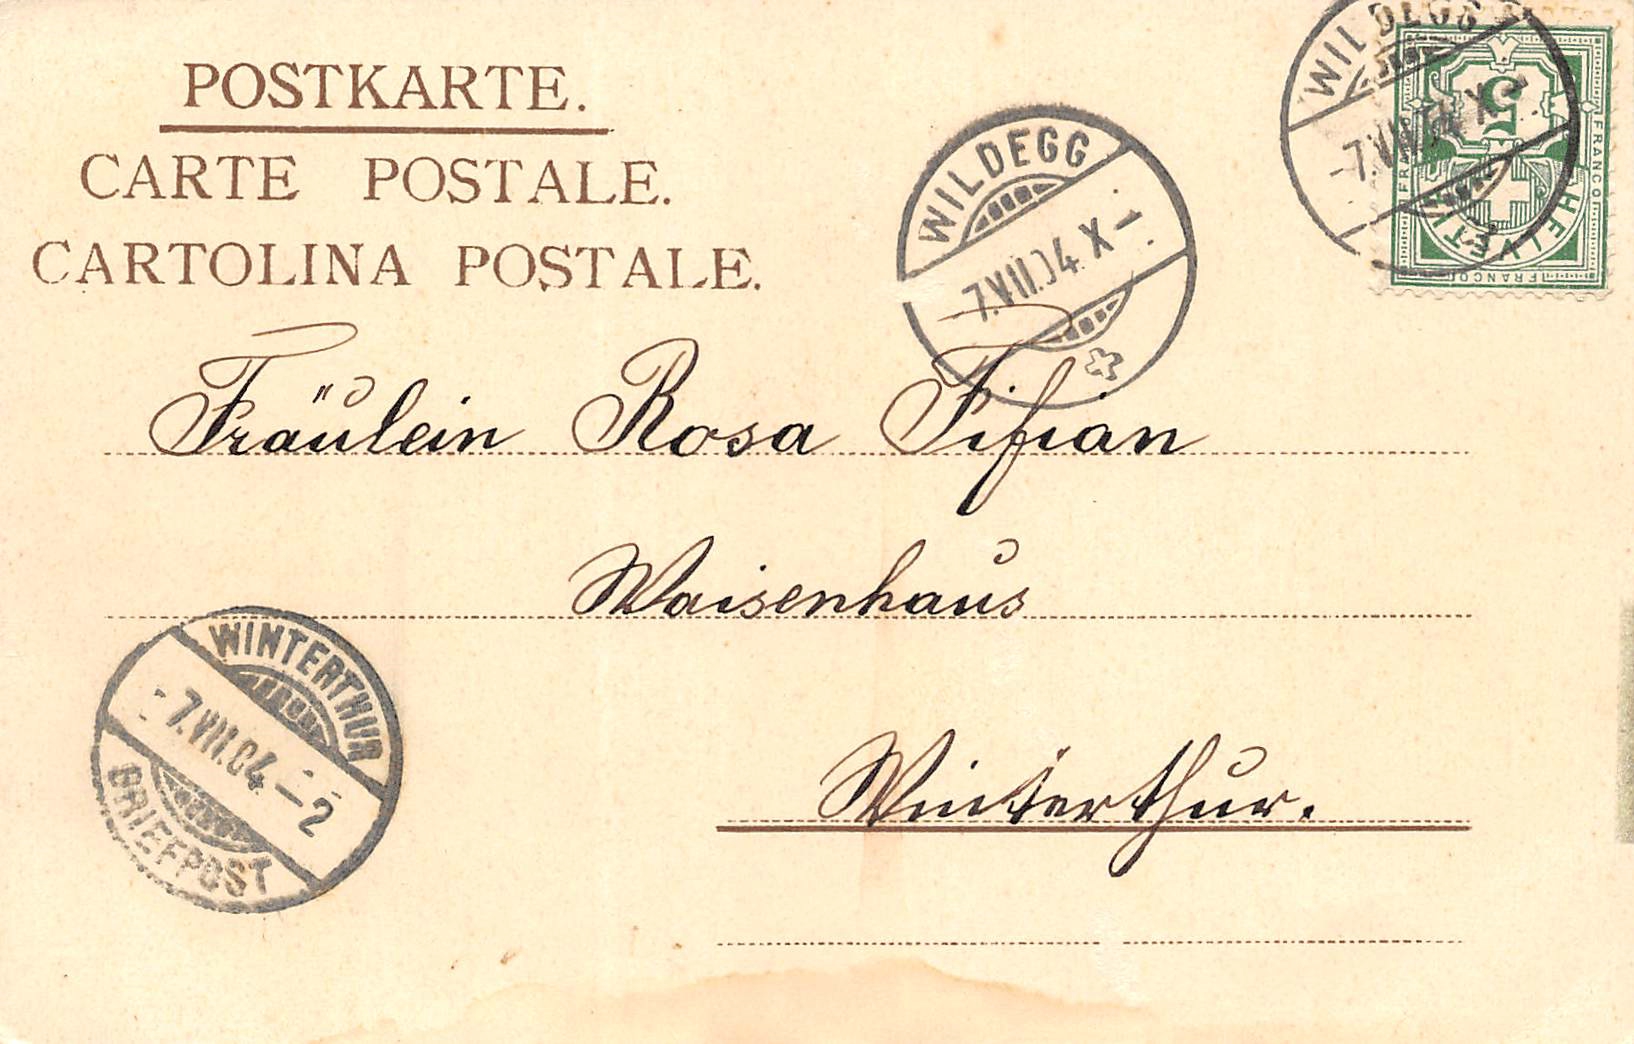 POSTKARTE.
CARTE POSTALE.
CARTOLINA POSTALE.
WILDEGG
7.VII.04.X-
WILDEGG
-7.VII.04.X-
5
FRANCO
FRANCO
HELVETIA
FRANCO
FRANCO
Fräulein Rosa Fifian
Waisenhaus
Winterthur.
WINTERTHUR
-7.VII.04.-2
BRIEFPOST